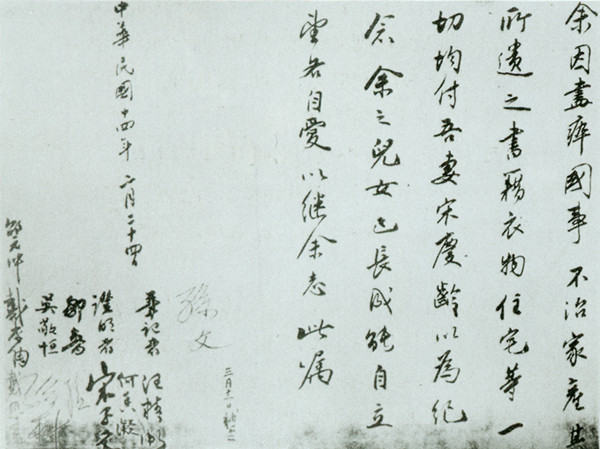 余因盡瘁國事不治家產其
所遺之書籍衣物住宅等一
切均付吾妻宋慶齡以為紀
念余之兒女已長成能自立
望各自愛以继余志此属
三月十一日補簽
孫文
中華民國十四年二月二十四日
筆記者 汪精衛
何香凝
證明者 宋子文
鄒魯
吳敬恒 孫科
戴季陶 戴恩賽
邵元冲